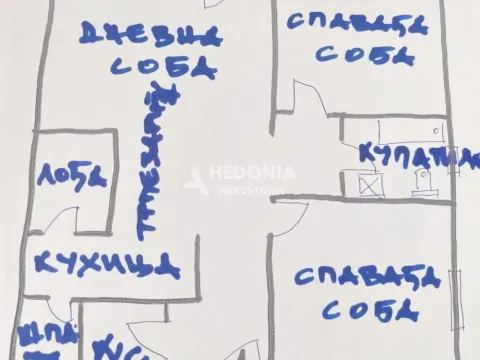 ДНЕВНА
СОБА
СПАВАЋА
СОБА
ТРПЕЗАРИЈА
КУПАТИЛО
ЛОЂА
HEDONIA
NEKRETNINE
КУХИЦА
СПАВАЋА
СОБА